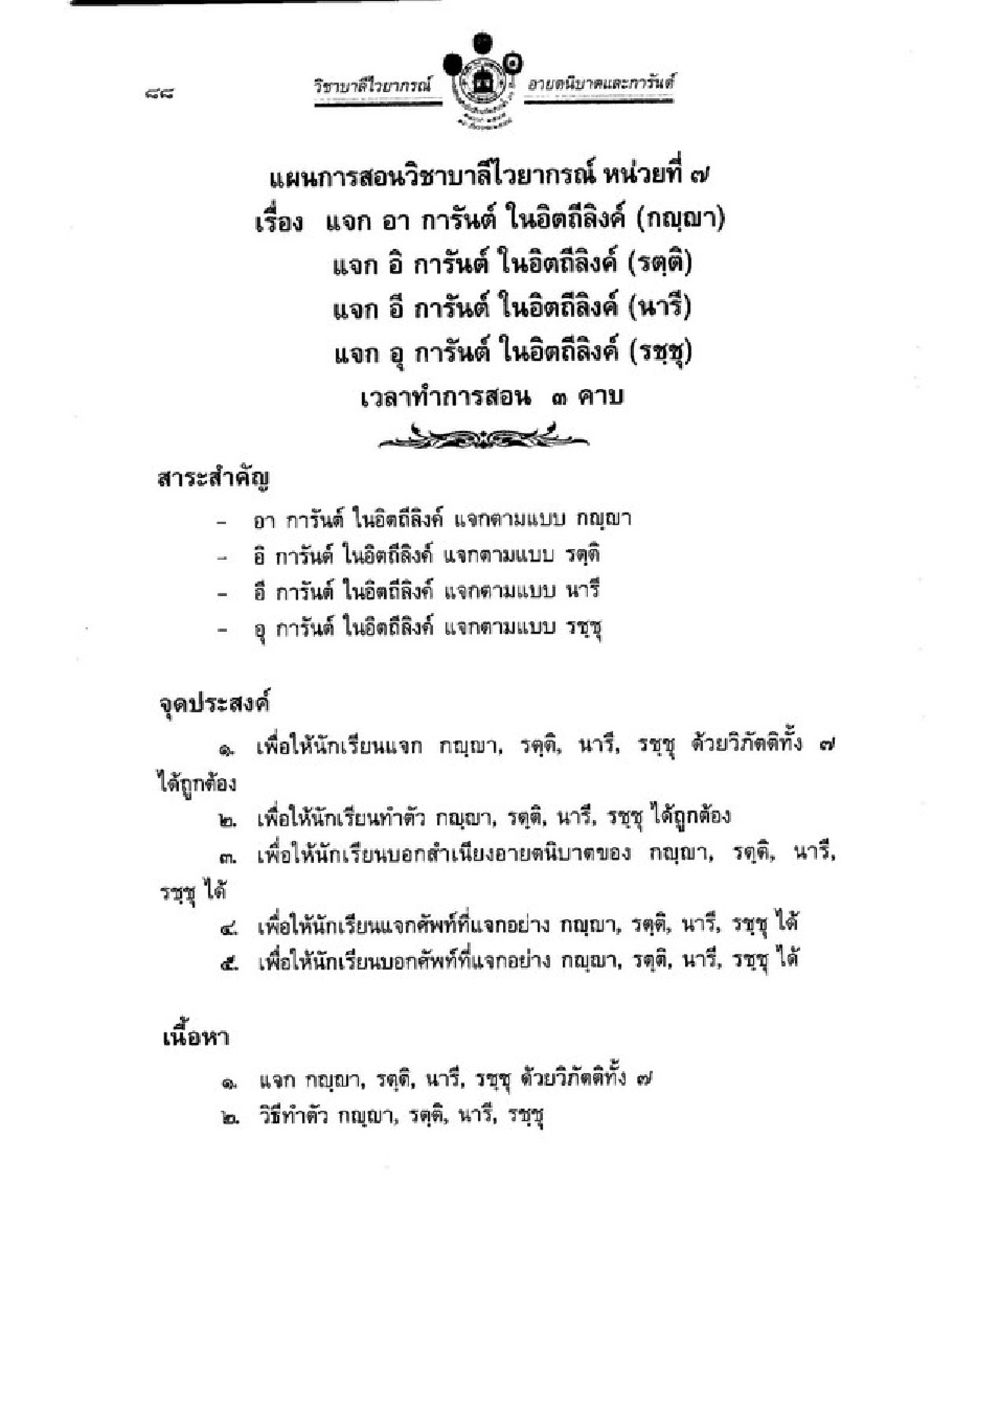 ๘๘
วิชาบาลีไวยากรณ์ อายตนิบาตและการันต์
แผนการสอนวิชาบาลีไวยากรณ์ หน่วยที่ ๗
เรื่อง แจก อา การันต์ ในอิตถีลิงค์ (กญฺญา)
แจก อิ การันต์ ในอิตถีลิงค์ (รตฺติ)
แจก อี การันต์ ในอิตถีลิงค์ (นารี)
แจก อุ การันต์ ในอิตถีลิงค์ (รชฺชุ)
เวลาทำการสอน ๓ คาบ
สาระสำคัญ
– อา การันต์ ในอิตถีลิงค์ แจกตามแบบ กญฺญา
– อิ การันต์ ในอิตถีลิงค์ แจกตามแบบ รตฺติ
– อี การันต์ ในอิตถีลิงค์ แจกตามแบบ นารี
– อุ การันต์ ในอิตถีลิงค์ แจกตามแบบ รชฺชุ
จุดประสงค์
๑. เพื่อให้นักเรียนแจก กญฺญา, รตฺติ, นารี, รชฺชุ ด้วยวิภัตติทั้ง ๗
ได้ถูกต้อง
๒. เพื่อให้นักเรียนทำตัว กญฺญา, รตฺติ, นารี, รชฺชุ ได้ถูกต้อง
๓. เพื่อให้นักเรียนบอกสำเนียงอายตนิบาตของ กญฺญา, รตฺติ, นารี,
รชฺชุ ได้
๔. เพื่อให้นักเรียนแจกศัพท์ที่แจกอย่าง กญฺญา, รตฺติ, นารี, รชฺชุ ได้
๕. เพื่อให้นักเรียนบอกศัพท์ที่แจกอย่าง กญฺญา, รตฺติ, นารี, รชฺชุ ได้
เนื้อหา
๑. แจก กญฺญา, รตฺติ, นารี, รชฺชุ ด้วยวิภัตติทั้ง ๗
๒. วิธีทำตัว กญฺญา, รตฺติ, นารี, รชฺชุ